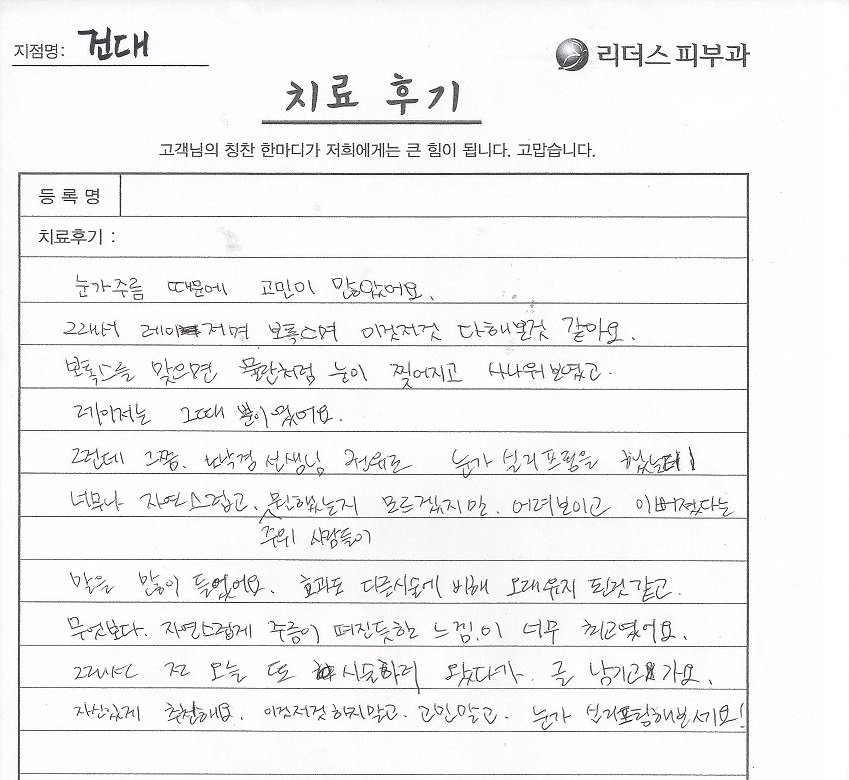 지점명: 건대
리더스 피부과
치료 후기
고객님의 칭찬 한마디가 저희에게는 큰 힘이 됩니다. 고맙습니다.
등 록 명
치료후기 :
눈가주름 때문에 고민이 많았어요.
그래서 레이저며 보톡스며 이것저것 다해본것 같아요.
보톡스를 맞으면 물란처럼 눈이 찢어지고 사나워보였고.
레이저는 그때 뿐이었어요.
그런데 그쯤. 선생님 권유로 눈가 실리프팅을 했는데
너무나 자연스럽고. 뭔했는지 모르겠지만. 어려보이고 이뻐졌다는
주위 사람들이
말을 많이 들었어요. 효과도 다른시술에 비해 오래유지 된것같고.
무엇보다. 자연스럽게 주름이 펴진듯한 느낌이 너무 최고였어요.
그래서 전 오늘 또 시술하러 왔다가. 글 남기고 가요.
자신있게 추천해요. 이것저것하지말고. 고민말고. 눈가 실리프팅해보세요!